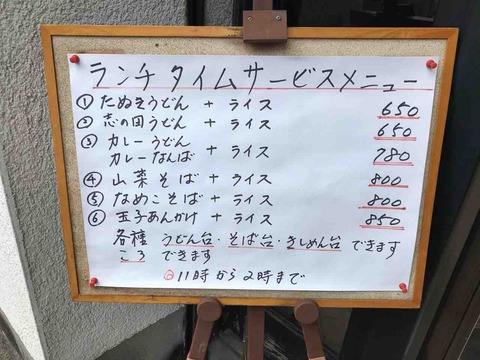 ランチタイムサービスメニュー
① たぬきうどん + ライス 650
② 志の田うどん + ライス 650
③ カレーうどん
カレーなんば + ライス 780
④ 山菜そば + ライス 800
⑤ なめこそば + ライス 800
⑥ 玉子あんかけ + ライス 850
各種 うどん台・そば台・きしめん台 できます
ころ できます
◎11時から2時まで